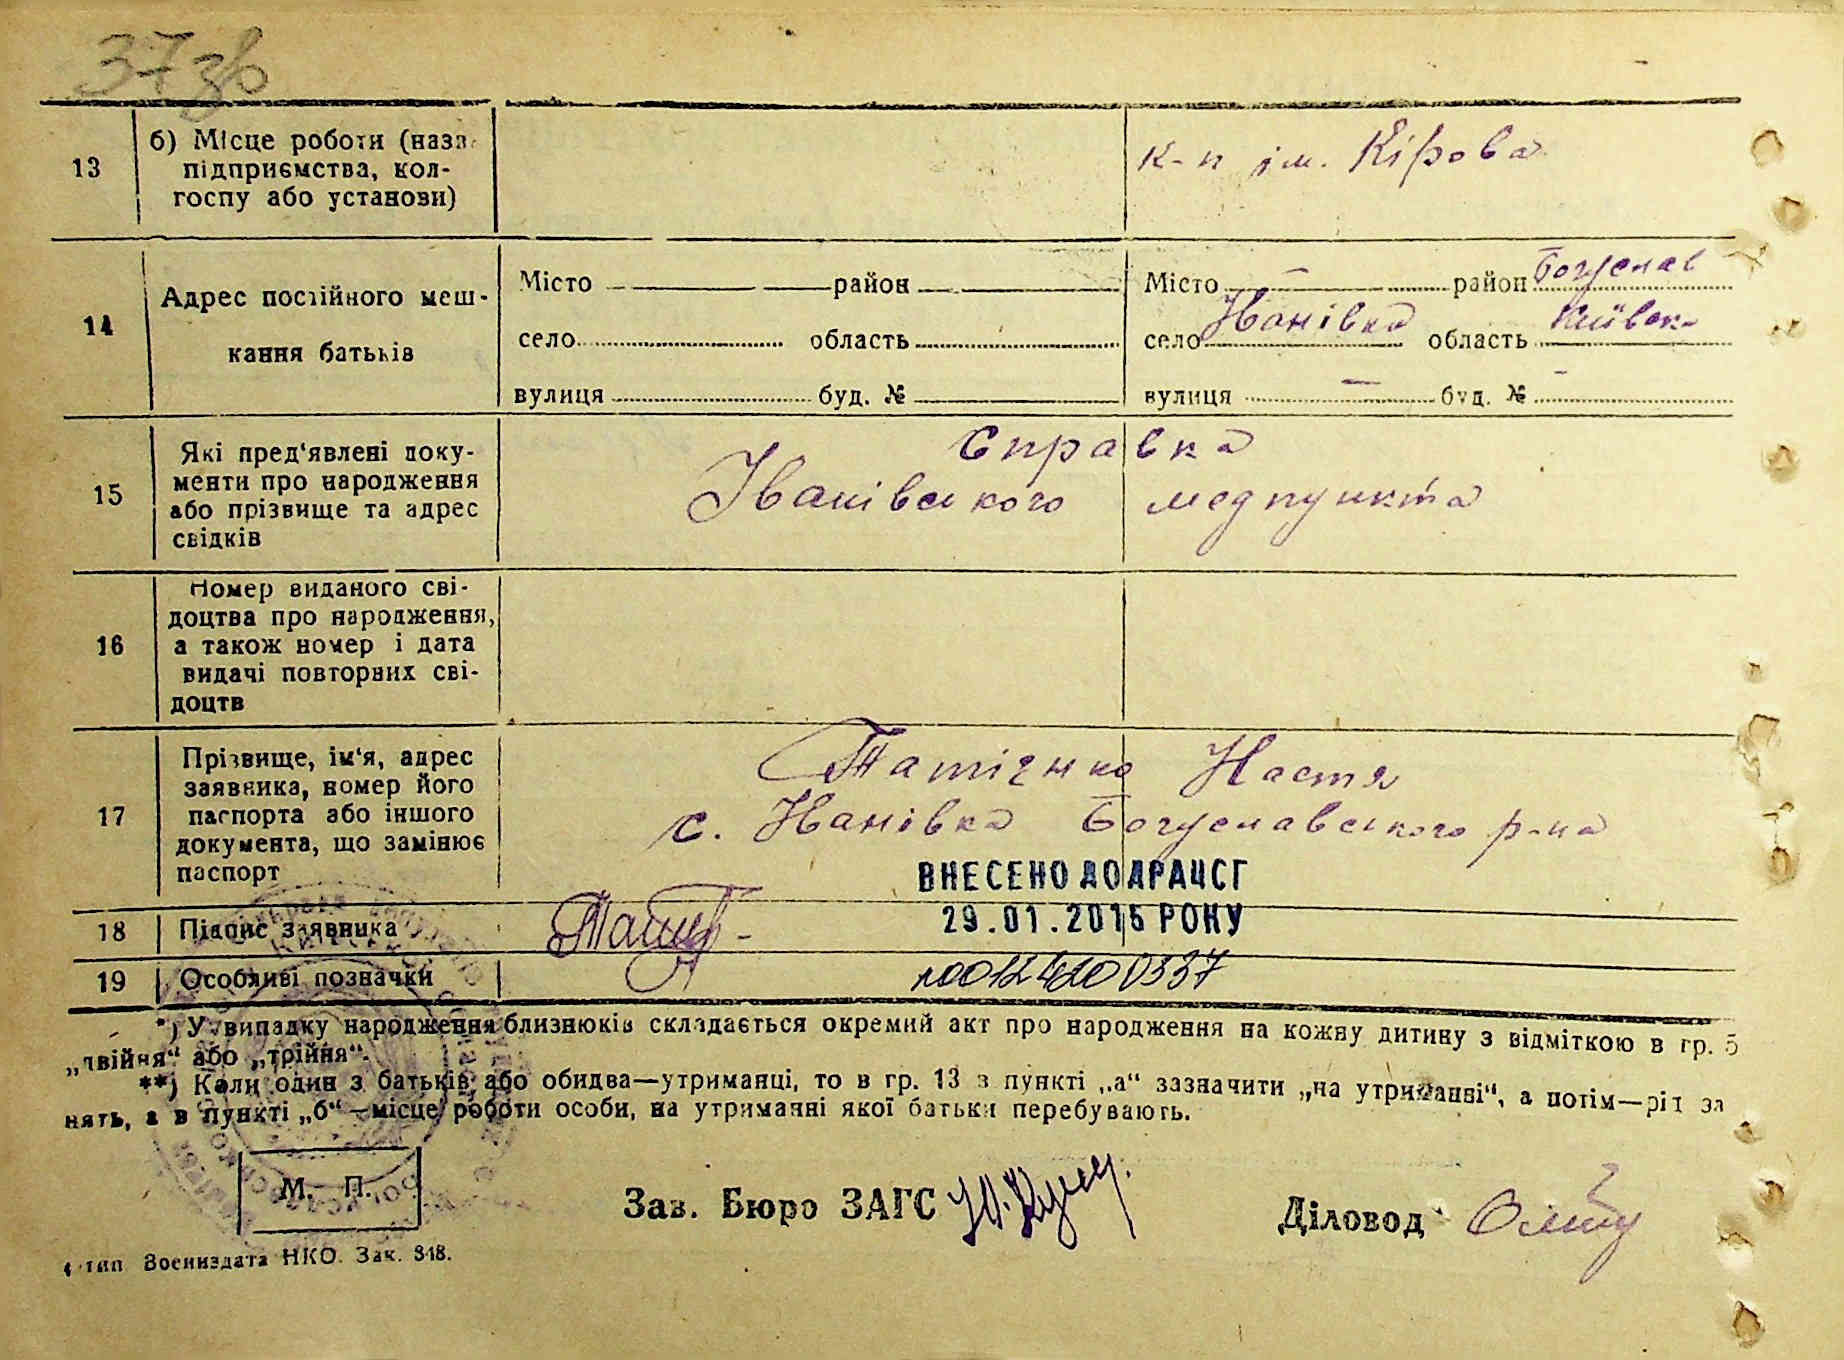 37 зв
13
б) Місце роботи (назва
підприємства, кол-
госпу або установи)
к-п ім. Кірова
14
Адрес постійного меш-
кання батьків
Місто район
село область
вулиця буд. №
Місто — район Богуслав
село Іванівка область Київськ.
вулиця — буд. № -
15
Які пред'явлені доку-
менти про народження
або прізвище та адрес
свідків
Справка
Іванівського медпункта
16
Номер виданого сві-
доцтва про народження,
а також номер і дата
видачі повторних сві-
доцтв
17
Прізвище, ім'я, адрес
заявника, номер його
паспорта або іншого
документа, що замінює
паспорт
Настя
с. Іванівка Богуславського р-на
ВНЕСЕНО ДО ДРАЦСГ
29.01.2015 РОКУ
18
Підпис заявника
19
Особливі позначки
*) У випадку народження близнюків складається окремий акт про народження на кожну дитину з відміткою в гр. 5
„двійня“ або „трійня“.
**) Коли один з батьків або обидва—утриманці, то в гр. 13 в пункті „а“ зазначити „на утриманні“, а потім—рід за
нять, а в пункті „б“—місце роботи особи, на утриманні якої батьки перебувають.
М. П.
Зав. Бюро ЗАГС
Діловод
4 тип Воениздата НКО. Зак. 348.